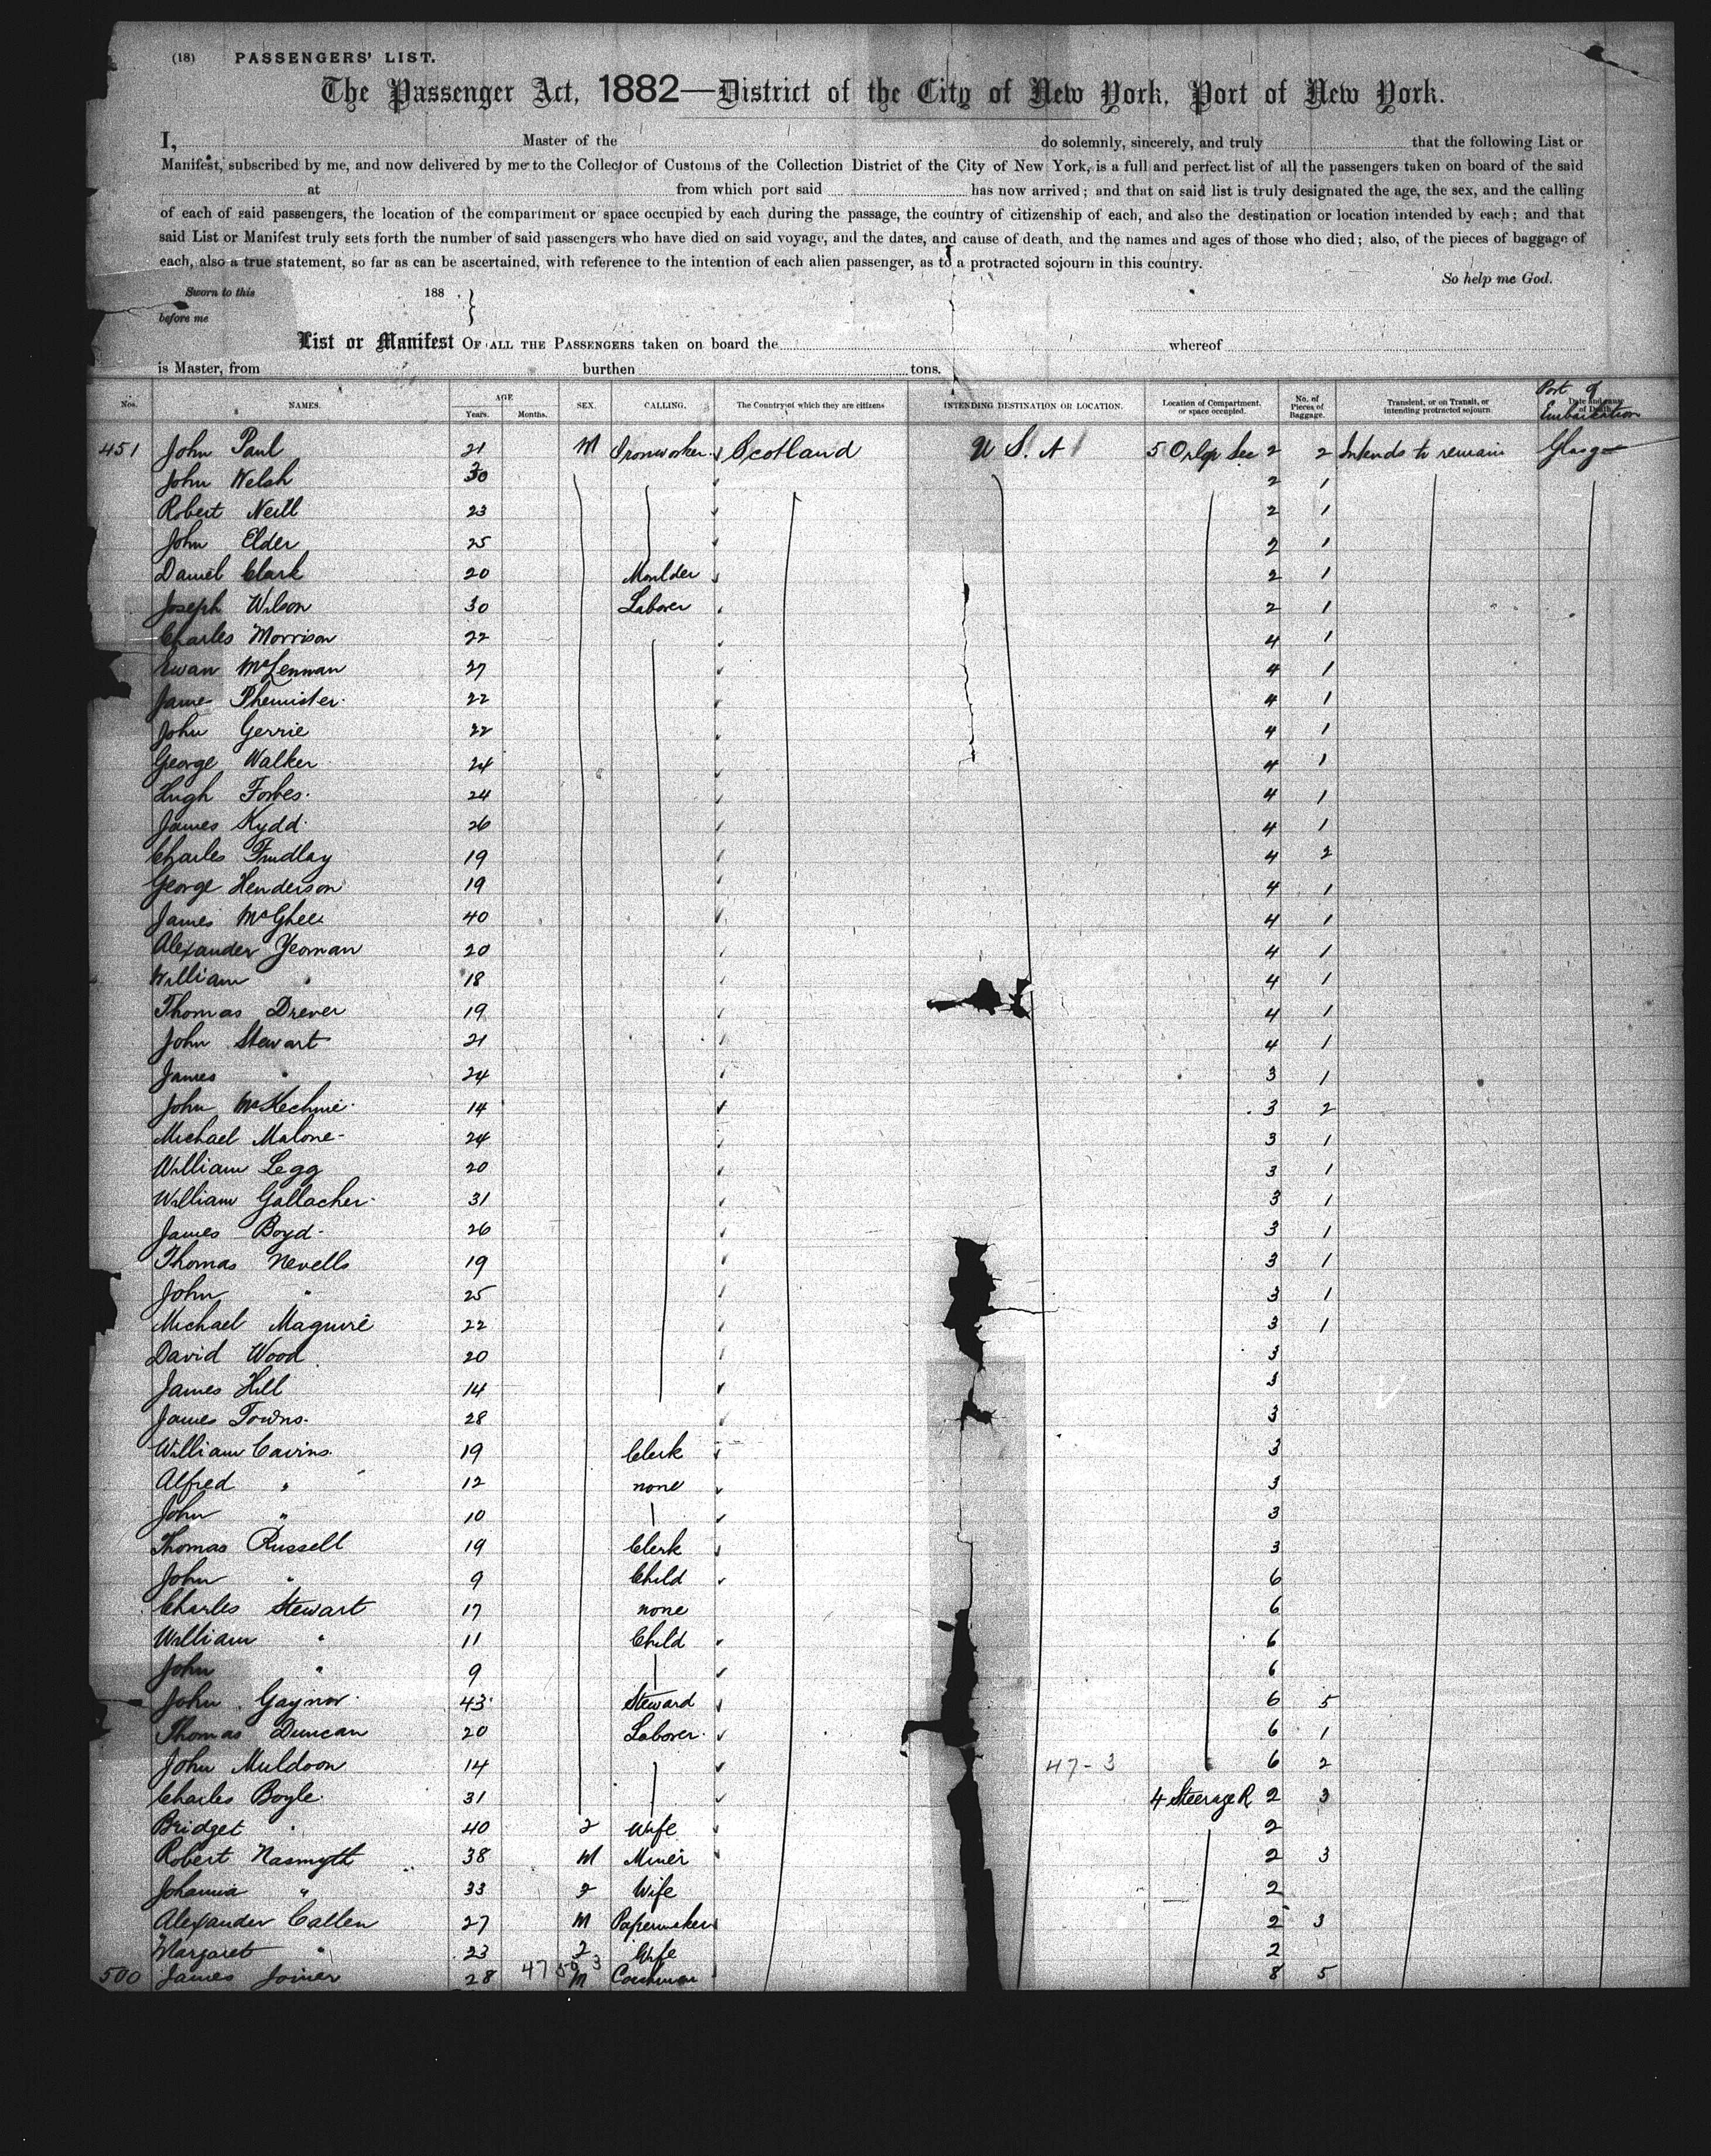 (18) PASSENGERS' LIST.
The Passenger Act, 1882—District of the City of New York, Port of New York.
I, Master of the do solemnly, sincerely, and truly that the following List or
Manifest, subscribed by me, and now delivered by me to the Collector of Customs of the Collection District of the City of New York, is a full and perfect list of all the passengers taken on board of the said
at from which port said has now arrived; and that on said list is truly designated the age, the sex, and the calling
of each of said passengers, the location of the compartment or space occupied by each during the passage, the country of citizenship of each, and also the destination or location intended by each; and that
said List or Manifest truly sets forth the number of said passengers who have died on said voyage, and the dates, and cause of death, and the names and ages of those who died; also, of the pieces of baggage of
each, also a true statement, so far as can be ascertained, with reference to the intention of each alien passenger, as to a protracted sojourn in this country.
So help me God.
Sworn to this 188 }
before me
List or Manifest OF ALL THE PASSENGERS taken on board the whereof
is Master, from burthen tons.
Nos. NAMES. AGE Years. Months. SEX. CALLING. The Country of which they are citizens INTENDING DESTINATION OR LOCATION. Location of Compartment, or space occupied. No. of Pieces of Baggage. Transient, or on Transit, or intending protracted sojourn. Port of Embarcation Date and cause of Death
451 John Paul 21 M Ironworker Scotland U S. A 5 Orlop Sec 2 2 Intends to remain Glasgow
John Welsh 30 2 1
Robert Neill 23 2 1
John Elder 25 2 1
Daniel Clark 20 Moulder 2 1
Joseph Wilson 30 Laborer 2 1
Charles Morrison 22 4 1
Ewan McLennan 27 4 1
James Phemister 22 4 1
John Gerrie 22 4 1
George Walker 24 4 1
Hugh Forbes 24 4 1
James Kydd 26 4 1
Charles Findlay 19 4 2
George Henderson 19 4 1
James McGhee 40 4 1
Alexander Yeoman 20 4 1
William " 18 4 1
Thomas Drever 19 4 1
John Stewart 21 4 1
James " 24 3 1
John McKechnie 14 3 2
Michael Malone 24 3 1
William Legg 20 3 1
William Gallacher 31 3 1
James Boyd 26 3 1
Thomas Nevells 19 3 1
John " 25 3 1
Michael Maguire 22 3 1
David Wood 20 3
James Hill 14 3
James Towns 28 3
William Cairns 19 Clerk 3
Alfred " 12 none 3
John " 10 3
Thomas Russell 19 Clerk 3
John " 9 Child 6
Charles Stewart 17 none 6
William " 11 Child 6
John " 9 6
John Gaynor 43 Steward 6 5
Thomas Duncan 20 Laborer 6 1
John Muldoon 14 47-3 6 2
Charles Boyle 31 4 Steerage R 2 3
Bridget " 40 F Wife 2
Robert Nasmyth 38 M Miner 2 3
Johanna " 33 F Wife 2
Alexander Callen 27 M Papermaker 2 3
Margaret " 23 F Wife 2
500 James Joiner 28 M Coachman 8 5